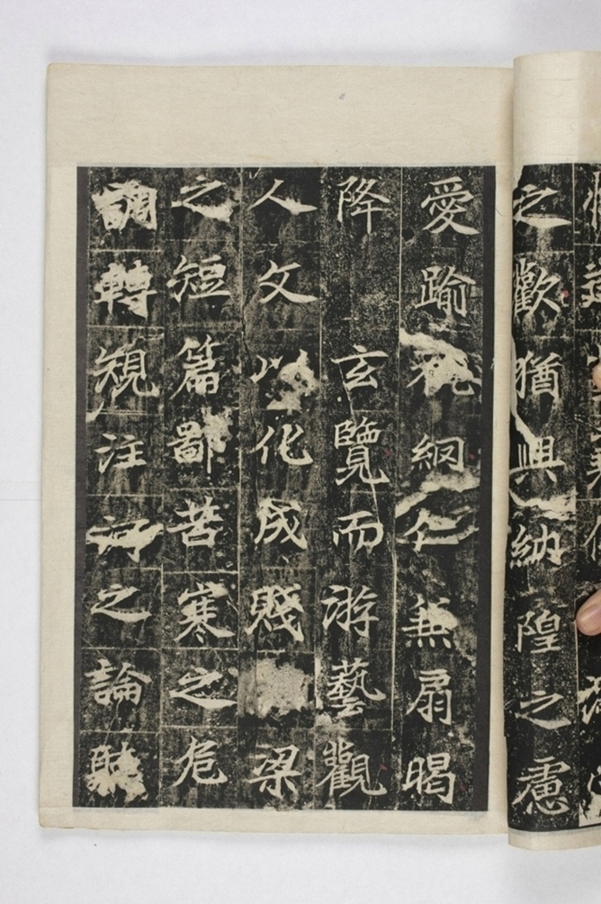 之歡猶興納隍之慮
愛踰網仁兼扇暍
降玄覽而游藝觀
人文以化成賤梁
之短篇鄙苦寒之危
調轉規注河之論